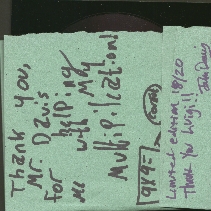 Thank you,
Mr. Davis
for helping
me with my
Multiplication!
9x9=?
Limited edition 18/20
Thank You Luigi!!